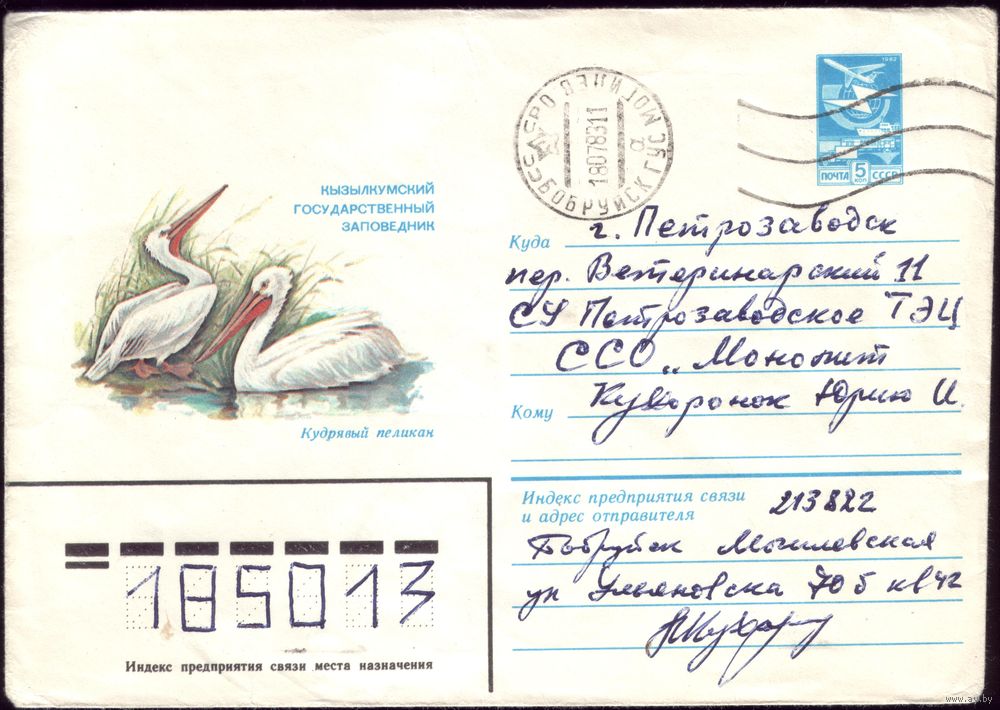 КЫЗЫЛКУМСКИЙ
ГОСУДАРСТВЕННЫЙ
ЗАПОВЕДНИК
Кудрявый пеликан
СССР БОБРУЙСК ГУС МОГИЛЕВ О
а
18078311
1982
ПОЧТА 5 КОП СССР
Куда г. Петрозаводск
пер. Ветеринарский 11
СУ Петрозаводское ТЭЦ
ССО „Монолит
Кому Юрию И.
Индекс предприятия связи
и адрес отправителя 213822
Бобруйск Могилевская
ул Ульяновска 70б кв 42
185013
Индекс предприятия связи места назначения
www.ay.by